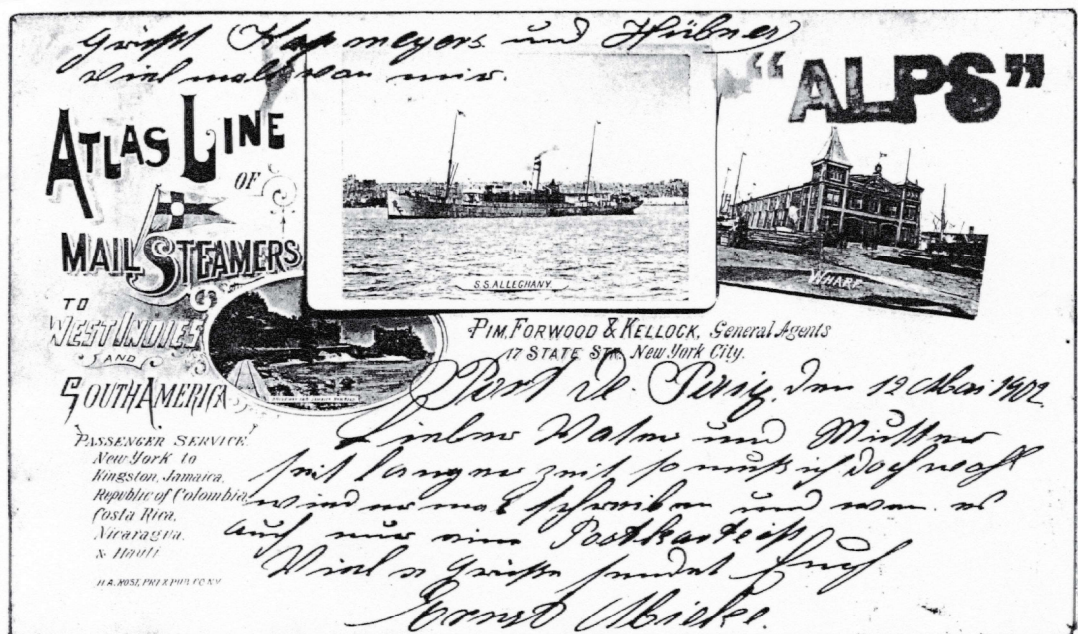 Grüßt Kapmeyers und Hübner
Viel mals von mir.
"ALPS"
ATLAS LINE
OF
MAIL STEAMERS
TO
WEST INDIES
AND
SOUTH AMERICA
S.S. ALLEGHANY
WHARF
PIM, FORWOOD & KELLOCK, General Agents
17 STATE STR. New York City.
PASSENGER SERVICE
New York to
Kingston, Jamaica,
Republic of Colombia,
Costa Rica,
Nicaragua,
& Hayti
Port de den 12 Mai 1902
Lieber Vater und Mutter
seit langer zeit so muß ich doch wohl
wieder mal schreiben und wen es
auch nur eine Postkarte ist
Viele Grüße sendet Euch
Ernst Mielke.